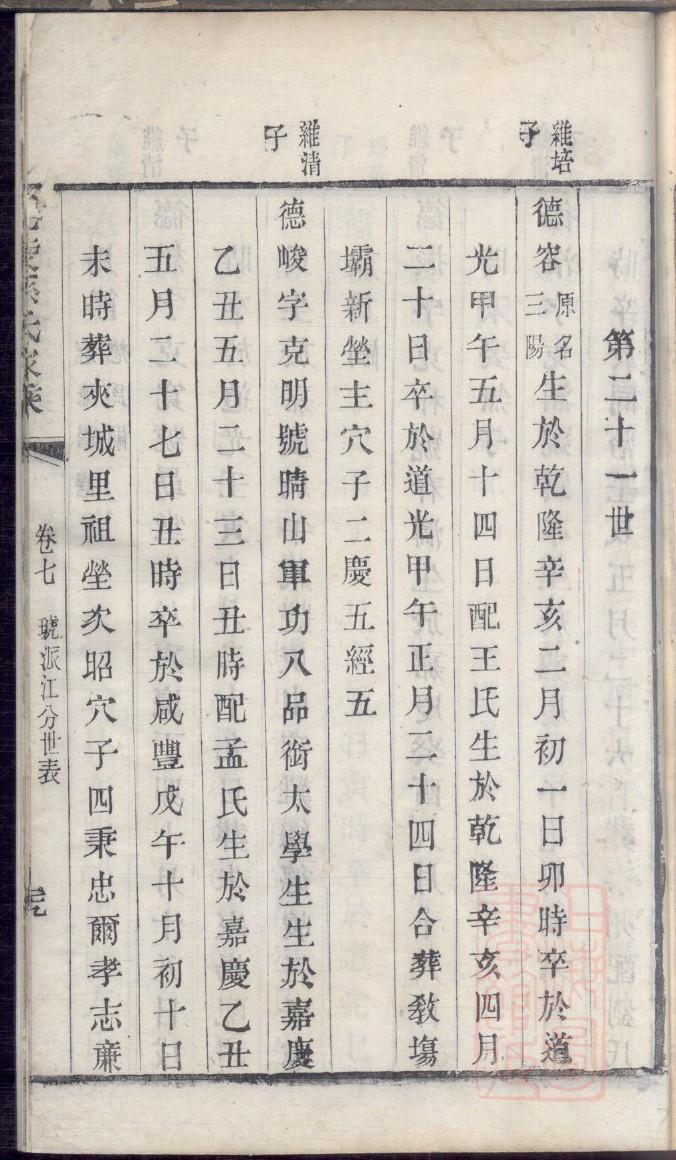 第二十一世
維培子
德容原名三陽生於乾隆辛亥二月初一日卯時卒於道
光甲午五月十四日配王氏生於乾隆辛亥四月
二十日卒於道光甲午正月二十四日合葬教塲
壩新塋主穴子二慶五經五
維清子
德峻字克明號晴山軍功八品銜太學生生於嘉慶
乙丑五月二十三日丑時配孟氏生於嘉慶乙丑
五月二十七日丑時卒於咸豐戊午十月初十日
未時葬夾城里祖塋次昭穴子四秉忠爾孝志亷
氏家乘
卷七
派江分世表